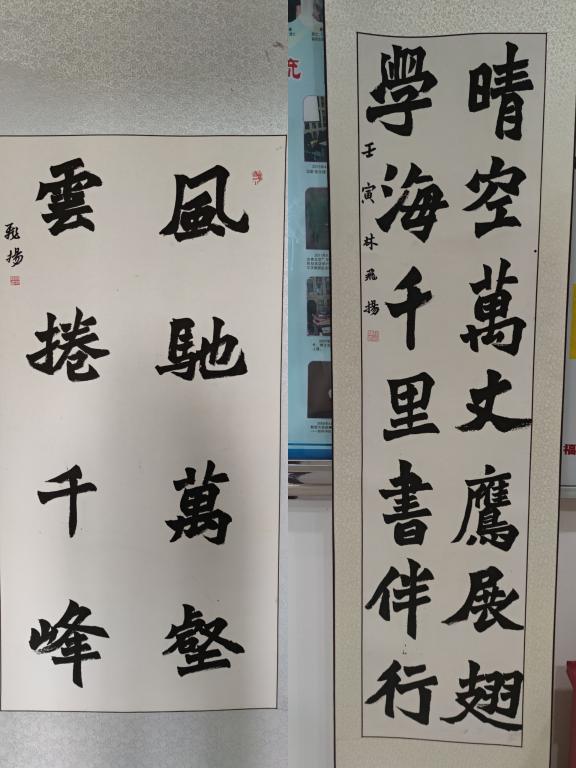 風馳萬壑
雲捲千峰
飛揚
晴空萬丈鷹展翅
學海千里書伴行
壬寅林飛揚
充
福